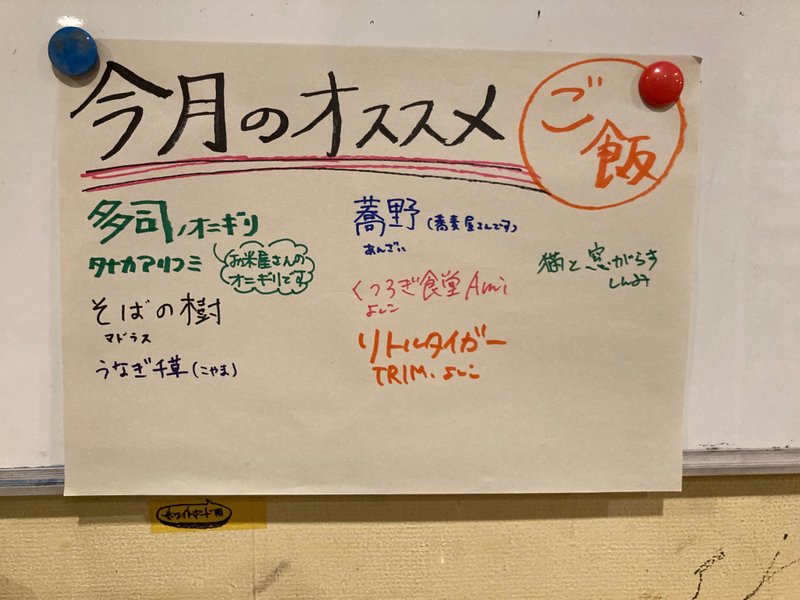 今月のオススメ
ご飯
多司ノオニギリ
タナカアリフミ
お米屋さんの
オニギリです
そばの樹
マドラス
うなぎ千草(こやま)
蕎野(蕎麦屋さんです)
あんでぃ
くつろぎ食堂Ami
よしこ
リトルタイガー
TRIM、よしこ
猫と窓がらす
しんみ
ホワイトボード用